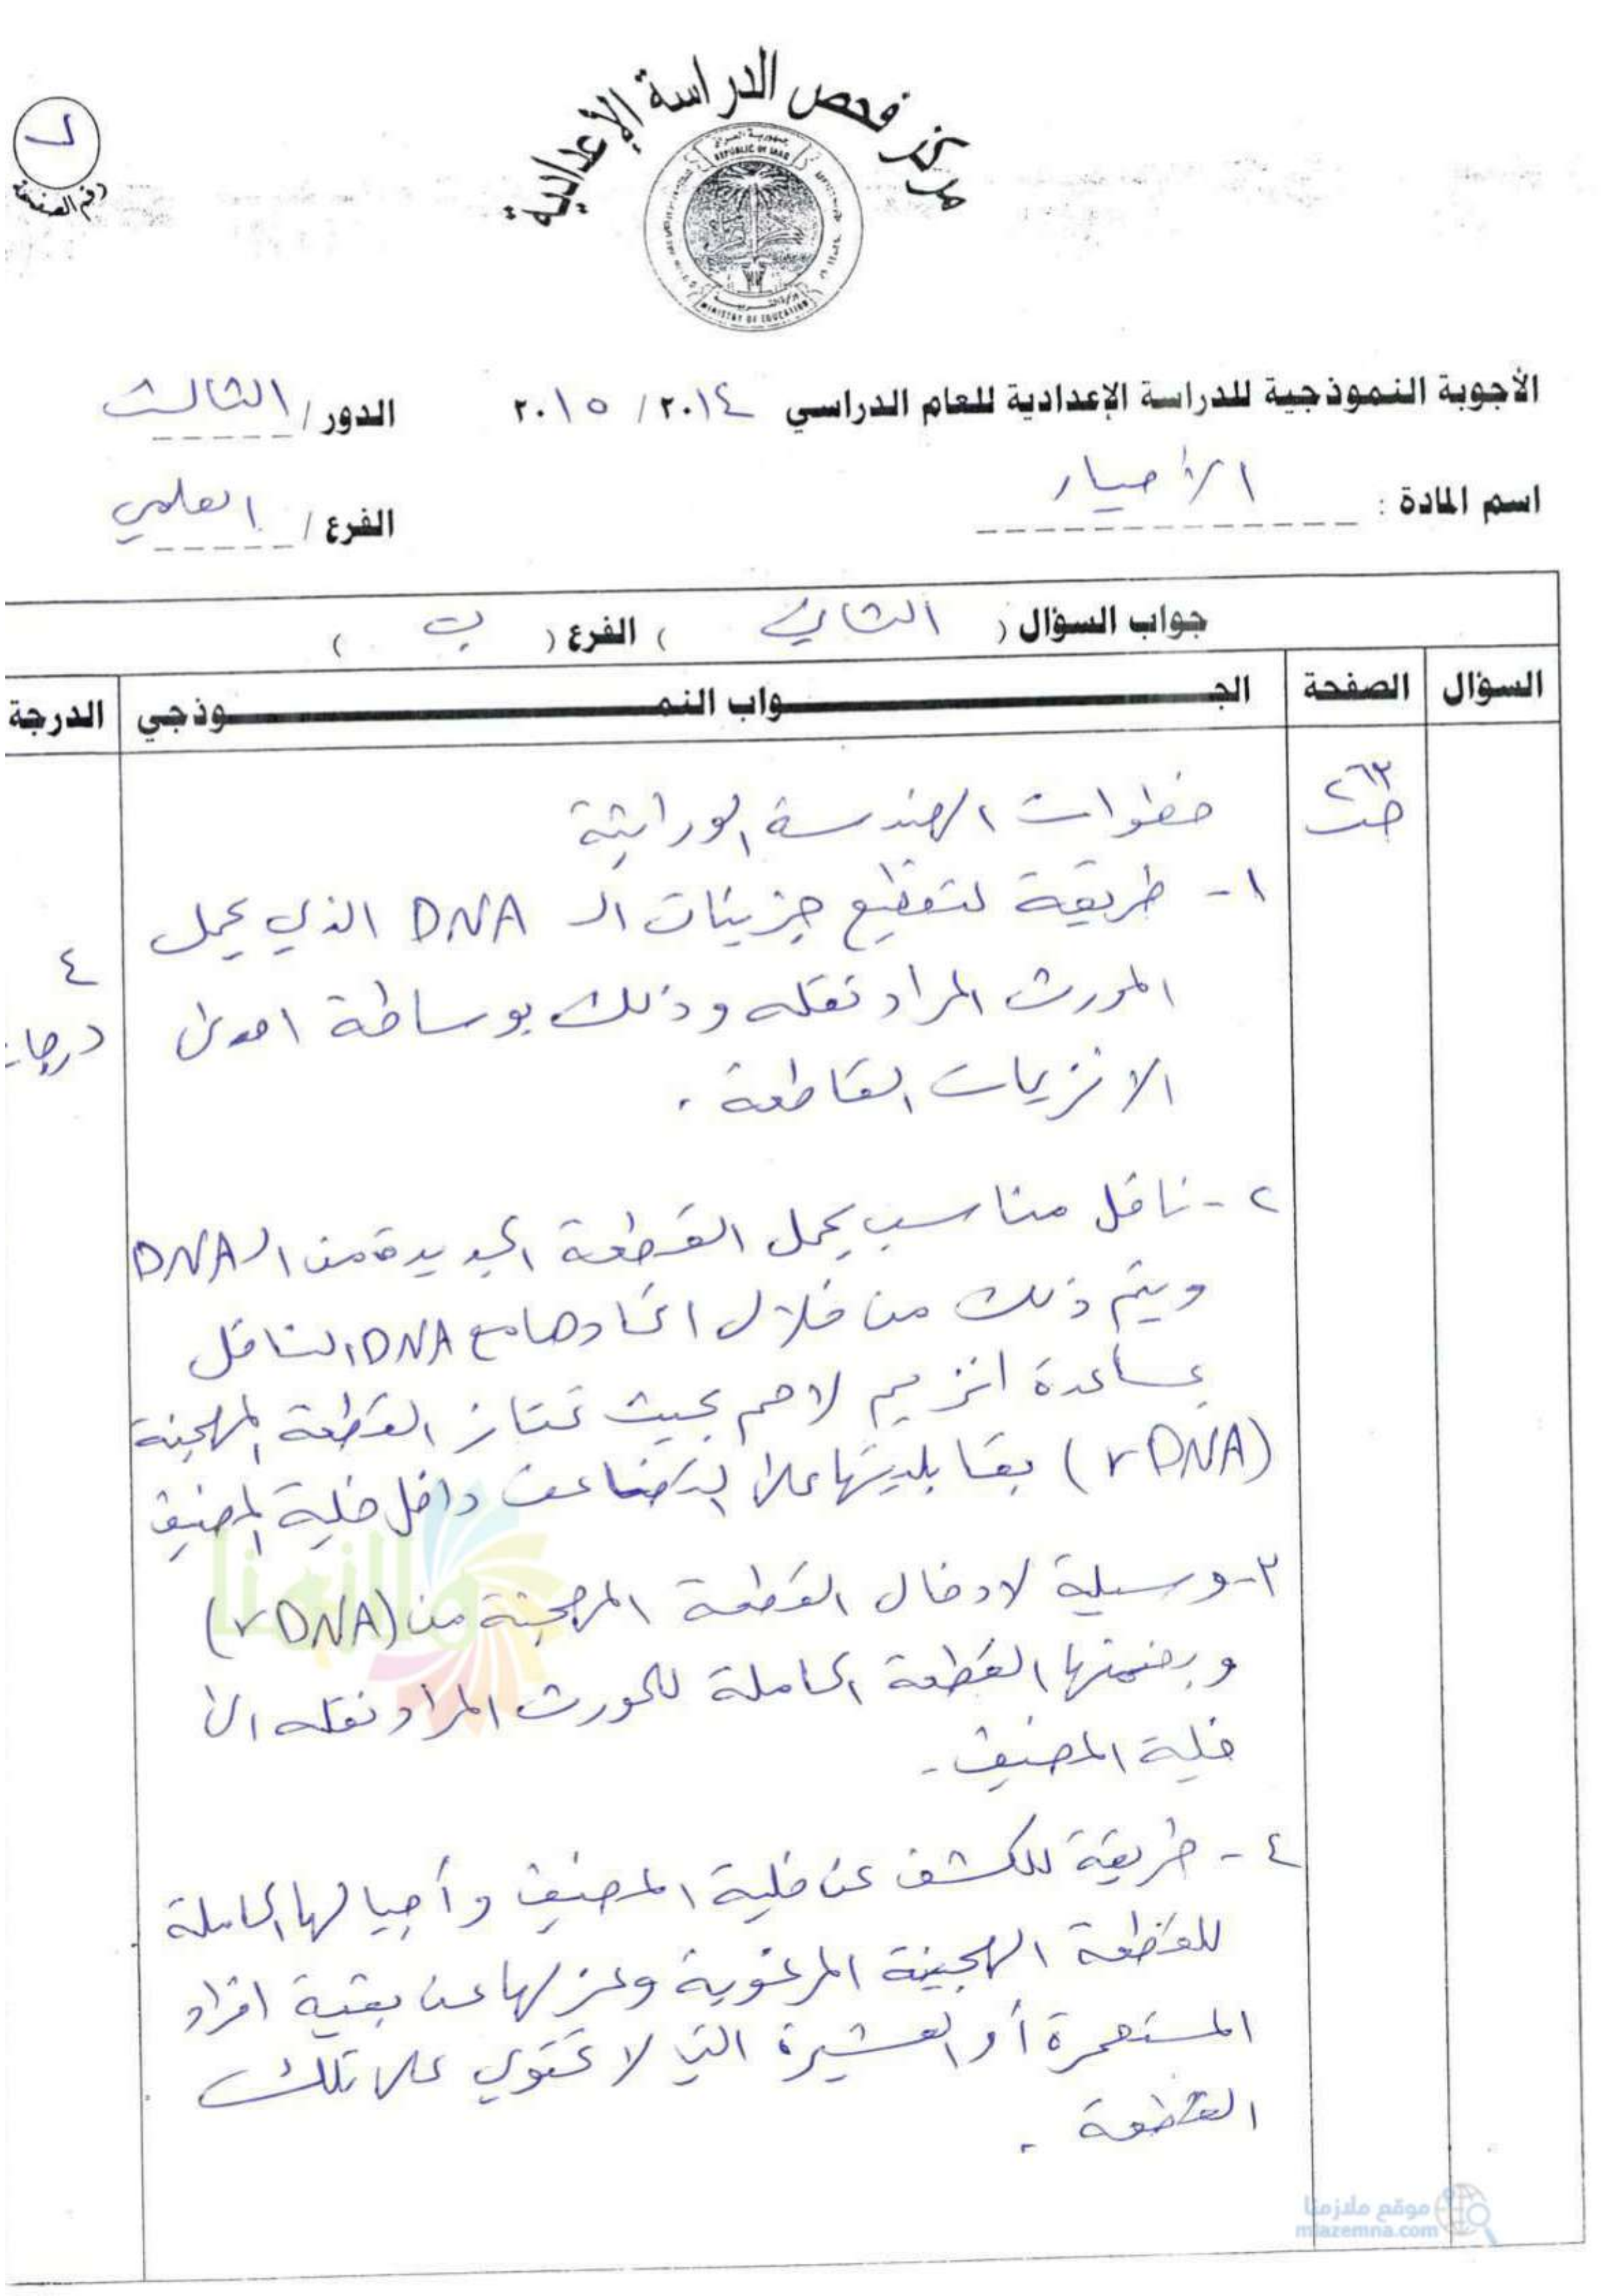 مركز فحص الدراسة الإعدادية
جمهورية العراق
REPUBLIC OF IRAQ
وزارة التربية
MINISTRY OF EDUCATION
رقم الصفحة
الأجوبة النموذجية للدراسة الإعدادية للعام الدراسي ٢٠١٤ / ٢٠١٥ الدور / الثالث
اسم المادة : الأحياء الفرع / العلمي
جواب السؤال ( الثاني ) الفرع ( ب )
السؤال الصفحة الجـواب النمـوذجي الدرجة
٢٦٣
خطوات الهندسة الوراثية
١- طريقة لتقطيع جزيئات الـ DNA الذي يحمل
المورث المراد نقله وذلك بوساطة احدى
الانزيمات القاطعة .
٤
درجات
٢- ناقل مناسب يحمل القطعة الجديدة من الـ DNA
ويتم ذلك من خلال اتحادها مع DNA الناقل
بمساعدة انزيم لاحم بحيث تمتاز القطعة المهجنة
(rDNA) بقابليتها على التضاعف داخل خلية المضيف
٣- وسيلة لادخال القطعة المهجنة من (rDNA)
وبضمنها القطعة الحاملة للمورث المراد نقله الى
خلية المضيف .
٤- طريقة للكشف عن خلية المضيف وأجيالها الحاملة
للقطعة الهجينة المرغوبة وعزلها عن بقية افراد
المستعمرة أو العشيرة التي لا تحتوي على تلك
القطعة .
موقع ملازمنا
mlazemna.com